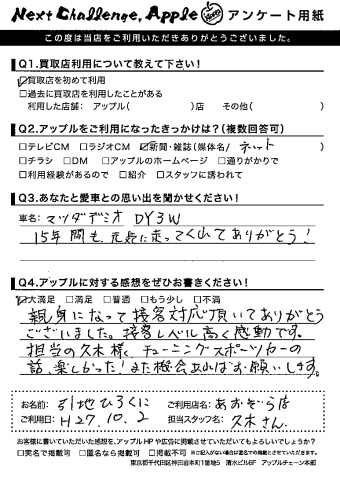 Next Challenge, Apple アンケート用紙
この度は当店をご利用いただきありがとうございました。
Q1.買取店利用について教えて下さい!
☑買取店を初めて利用
□過去に買取店を利用したことがある
利用した店舗: アップル( )店 その他( )
Q2.アップルをご利用になったきっかけは?(複数回答可)
□テレビCM □ラジオCM ☑新聞・雑誌(媒体名/ ネット )
□チラシ □DM □アップルのホームページ □通りがかりで
□利用経験があるので □紹介 □スタッフに誘われて
Q3.あなたと愛車との思い出を聞かせください!
車名: マツダデミオ DY3W
15年間も、元気に走ってくれてありがとう!
Q4.アップルに対する感想をぜひお書きください!
☑大満足 □満足 □普通 □もう少し □不満
親身になって接客対応頂いてありがとう
ございました。接客レベル高く感動です。
担当の久木様と、チューニングスポーツカーの
話、楽しかった!また機会あればお願いします。
お名前: 引地ひろくに ご利用店名: あおぞら店
ご利用日: H27.10.2 担当スタッフ名: 久木さん
お客様に書いていただいた感想を、アップルHPや広告に掲載させていただいてもよろしいでしょうか?
□実名で掲載可 □匿名なら掲載可 □掲載不可 ※ご記入がない場合は匿名での掲載とさせていただきます。
東京都千代田区神田谷本町1番地5 清水ビル6F アップルチェーン本部